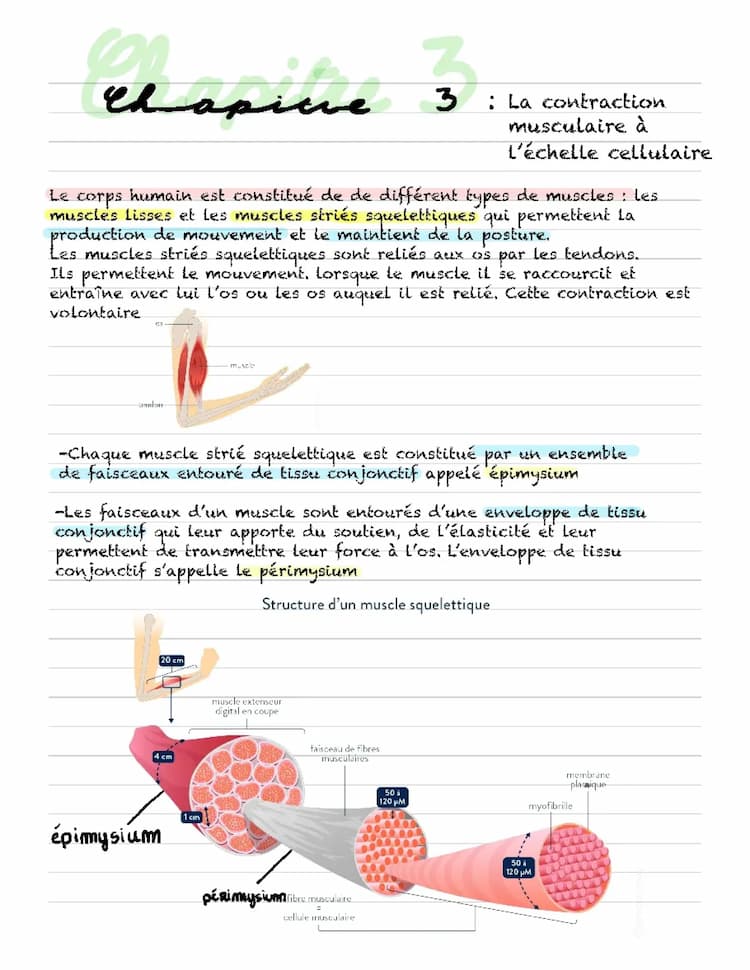 Chapitre 3
Chapitre 3 : La contraction
musculaire à
l'échelle cellulaire
Le corps humain est constitué de de différent types de muscles : les
muscles lisses et les muscles striés squelettiques qui permettent la
production de mouvement et le maintient de la posture.
Les muscles striés squelettiques sont reliés aux os par les tendons.
Ils permettent le mouvement. lorsque le muscle il se raccourcit et
entraîne avec lui l'os ou les os auquel il est relié. Cette contraction est
volontaire
os
muscle
tendon
-Chaque muscle strié squelettique est constitué par un ensemble
de faisceaux entouré de tissu conjonctif appelé épimysium
-Les faisceaux d'un muscle sont entourés d'une enveloppe de tissu
conjonctif qui leur apporte du soutien, de l'élasticité et leur
permettent de transmettre leur force à l'os. L'enveloppe de tissu
conjonctif s'appelle le périmysium
Structure d'un muscle squelettique
20 cm
muscle extenseur
digital en coupe
4 cm
faisceau de fibres
musculaires
membrane
plasmique
50 à
120 µM
myofibrille
1 cm
épimysium
50 à
120 µM
périmysium
fibre musculaire
=
cellule musculaire